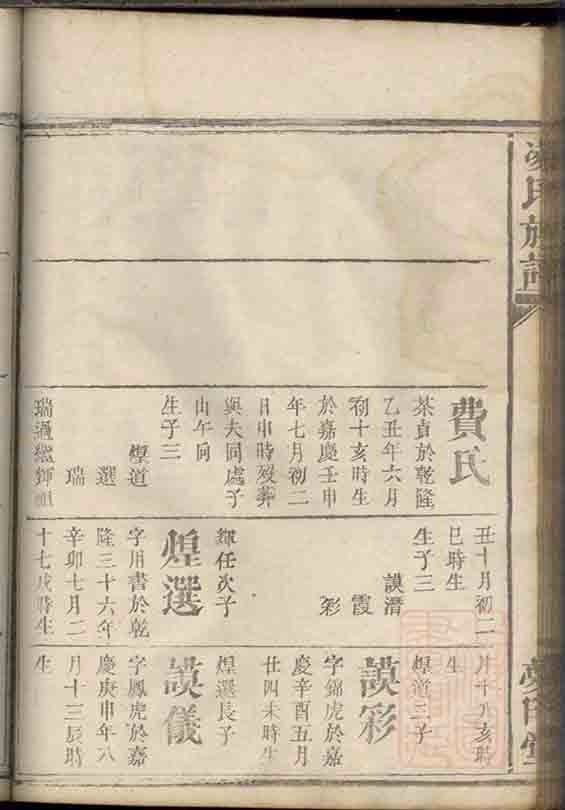 凌氏族譜
費氏
茶貞於乾隆
乙丑年六月
初十亥時生
於嘉慶壬申
年七月初二
日申時歿葬
與夫同處子
山午向
生子三
煌道
選
瑞
瑞過繼輝祖
丑十月初二
巳時生
生子三
謨潛
霞
彩
輝任次子
煌選
字用書於乾
隆三十六年
辛卯七月二
十七戌時生
月十八亥時
生
煌道三子
謨彩
字錦虎於嘉
慶辛酉五月
廿四未時生
煌選長子
謨儀
字鳳虎於嘉
慶庚申年八
月十三辰時
生